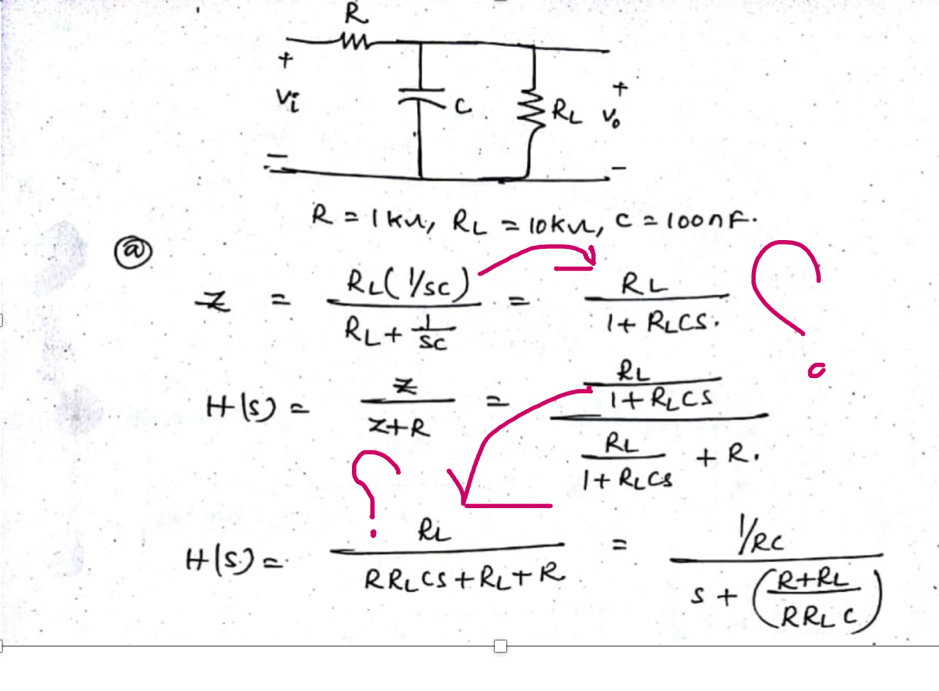 R
+ Vi − C RL + Vo −
R = 1kΩ, RL = 10kΩ, C = 100nF.
(a)
Z = RL(1/sC) / (RL + 1/sC) = RL / (1 + RLCs). ?
H(s) = Z / (Z+R) = (RL / (1+RLCs)) / (RL / (1+RLCs) + R).
?
H(s) = RL / (RRLCs + RL + R) = (1/RC) / (s + ((R+RL) / (RRLC)))